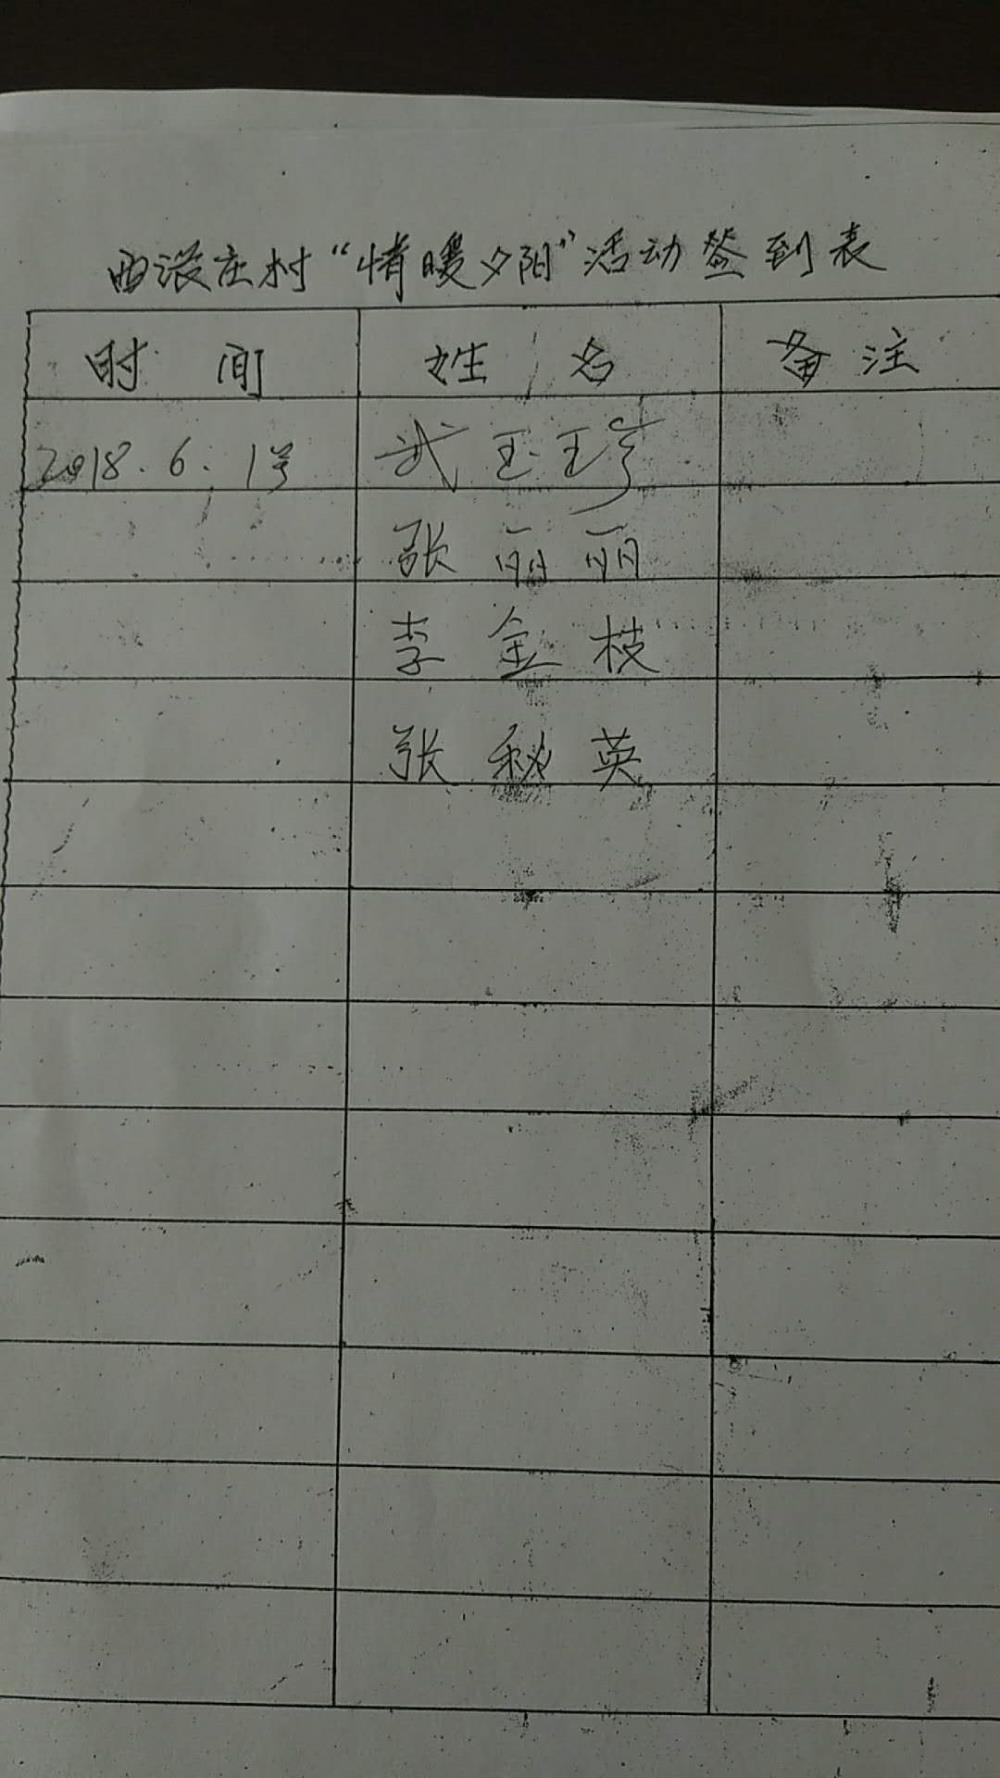 西漖庄村“情暖夕阳”活动签到表
时 间 姓 名 备 注
2018.6.1号 武玉
张丽丽
李金枝
张秘英